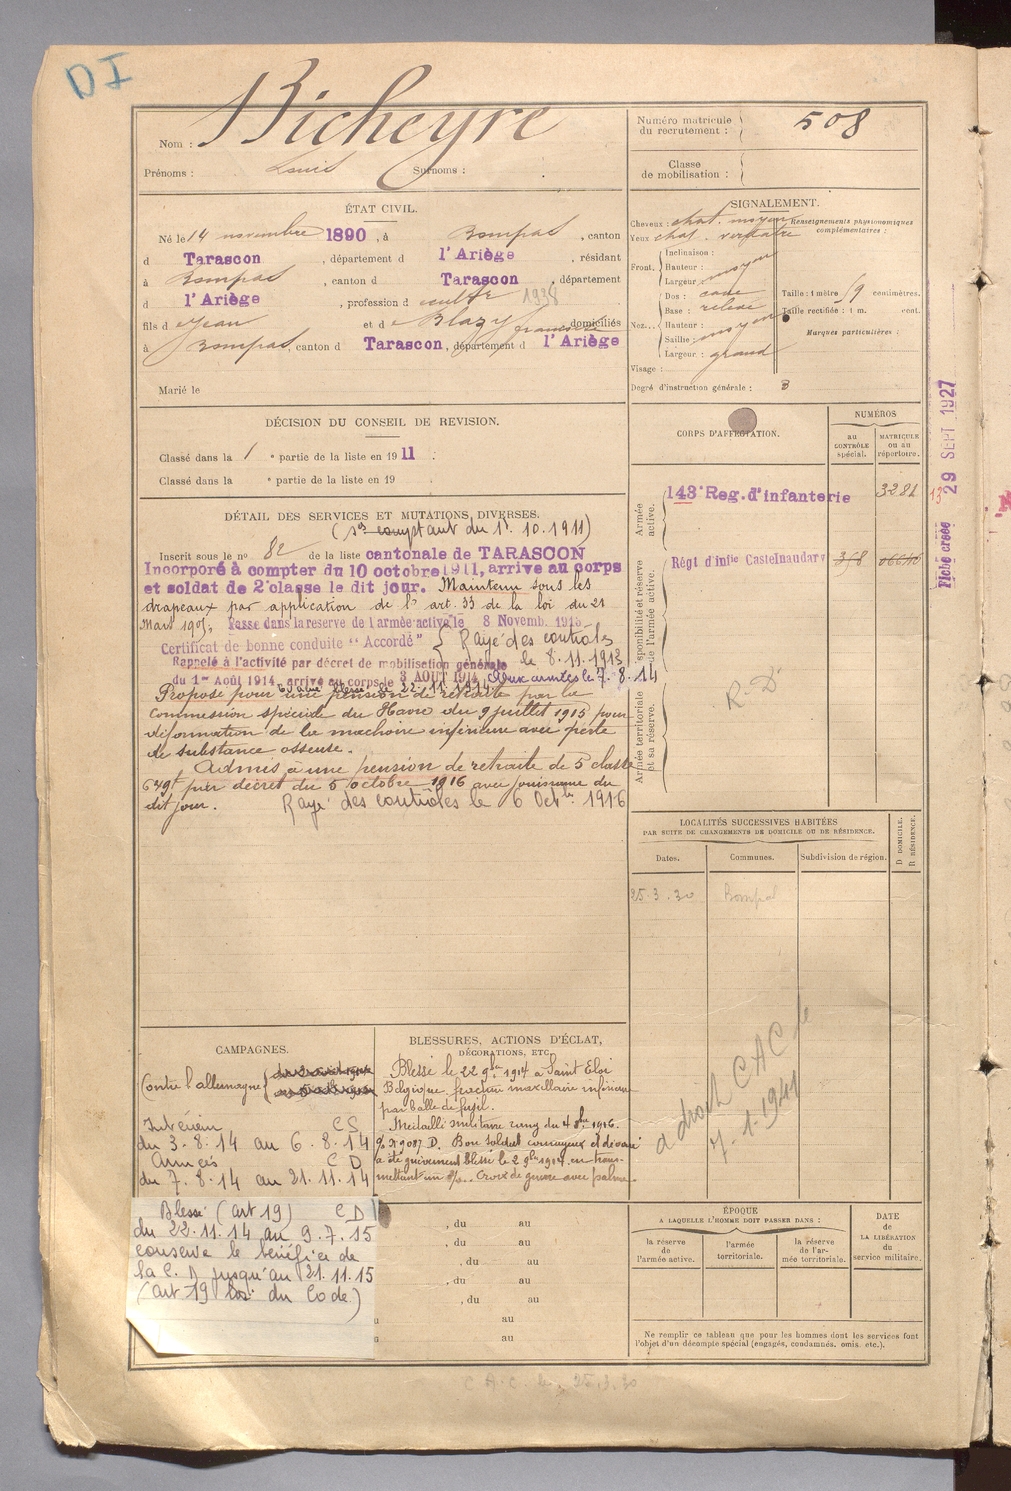 DI
Nom : Bicheyre
Prénoms : Louis Surnoms :
Numéro matricule du recrutement : 508
Classe de mobilisation :
ÉTAT CIVIL.
Né le 14 novembre 1890, à Bompas, canton
d Tarascon, département d l'Ariège, résidant
à Bompas, canton d Tarascon, département
d l'Ariège, profession d cultr 1938
fils d e Jean et d e Blazy françoise domiciliés
à Bompas, canton d Tarascon, département d l'Ariège
Marié le
SIGNALEMENT.
Cheveux : chat. moyen
Yeux chat. verdatre
Renseignements physionomiques complémentaires :
Front. Inclinaison :
Hauteur :
Largeur : moyen
Nez... Dos : cave
Base : relevé
Hauteur :
Saillie : moyen
Largeur : grand
Taille : 1 mètre 59 centimètres.
Taille rectifiée : 1 m. cent.
Marques particulières :
Visage :
Degré d'instruction générale : 3
DÉCISION DU CONSEIL DE REVISION.
Classé dans la 1 e partie de la liste en 1911.
Classé dans la e partie de la liste en 19 .
DÉTAIL DES SERVICES ET MUTATIONS DIVERSES.
comptant du 1r. 10.1911)
Inscrit sous le no 82 de la liste cantonale de TARASCON
Incorporé à compter du 10 octobre 1911, arrive au corps
et soldat de 2e classe le dit jour. Maintenu sous les
drapeaux par application de l' art. 33 de la loi du 21
Mars 1905, Passe dans la reserve de l'armée active le 8 Novemb. 1913
Certificat de bonne conduite "Accordé" Rayé des controles
le 8.11.1913
Rappelé à l'activité par décret de mobilisation générale
du 1er Août 1914, arrivé au corps le 3 AOUT 1914 Aux armées le 7.8.14
blessé le 22.11.1914
Proposé pour une pension de retraite par la
commission spéciale du Havre du 9 juillet 1915 pour
déformation de la machoire inférieure avec perte
de substance osseuse.
Admis à une pension de retraite de 5e classe
par décret du 5 octobre 1916 avec jouissance du
dit jour. Rayé des contrôles le 6 Octbe 1916
CORPS D'AFFECTATION.
NUMÉROS
au CONTRÔLE spécial.
MATRICULE ou au répertoire.
Armée active.
143e Reg. d'infanterie 3284
Disponibilité et réserve de l'armée active.
Régt d'infie Castelnaudary 358
Armée territoriale et sa réserve.
R. D.
Fiche créée 29 SEPT 1927
LOCALITÉS SUCCESSIVES HABITÉES
PAR SUITE DE CHANGEMENTS DE DOMICILE OU DE RÉSIDENCE.
Dates. Communes. Subdivision de région. D DOMICILE. R RÉSIDENCE.
25.3.30 Bompas
a droit CAC le
7.1.1941
CAMPAGNES.
Contre l'allemagne
Intérieur CS
du 3.8.14 au 6.8.14
Armées CD
du 7.8.14 au 21.11.14
Blessé (art 19) CD
du 22.11.14 au 9.7.15
conserve le bénéfice de
la C.D jusqu'au 21.11.15
(art 19 du Code)
BLESSURES, ACTIONS D'ÉCLAT,
DÉCORATIONS, ETC.
Blessé le 22 9bre 1914 à Saint Eloi
Belgique fracture maxillaire inférieur
par balle de fusil.
Médaille militaire rang du 4 8bre 1916.
9087 D. Bon soldat courageux et dévoué
a été grièvement blessé le 2 9bre 1914 en trans-
mettant un Croix de guerre avec palme
, du au
, du au
, du au
, du au
, du au
au
au
ÉPOQUE
A LAQUELLE L'HOMME DOIT PASSER DANS :
la réserve de l'armée active.
l'armée territoriale.
la réserve de l'armée territoriale.
DATE de LA LIBÉRATION du service militaire.
Ne remplir ce tableau que pour les hommes dont les services font
l'objet d'un décompte spécial (engagés, condamnés, omis, etc.).
C.A.C. le 25.3.30